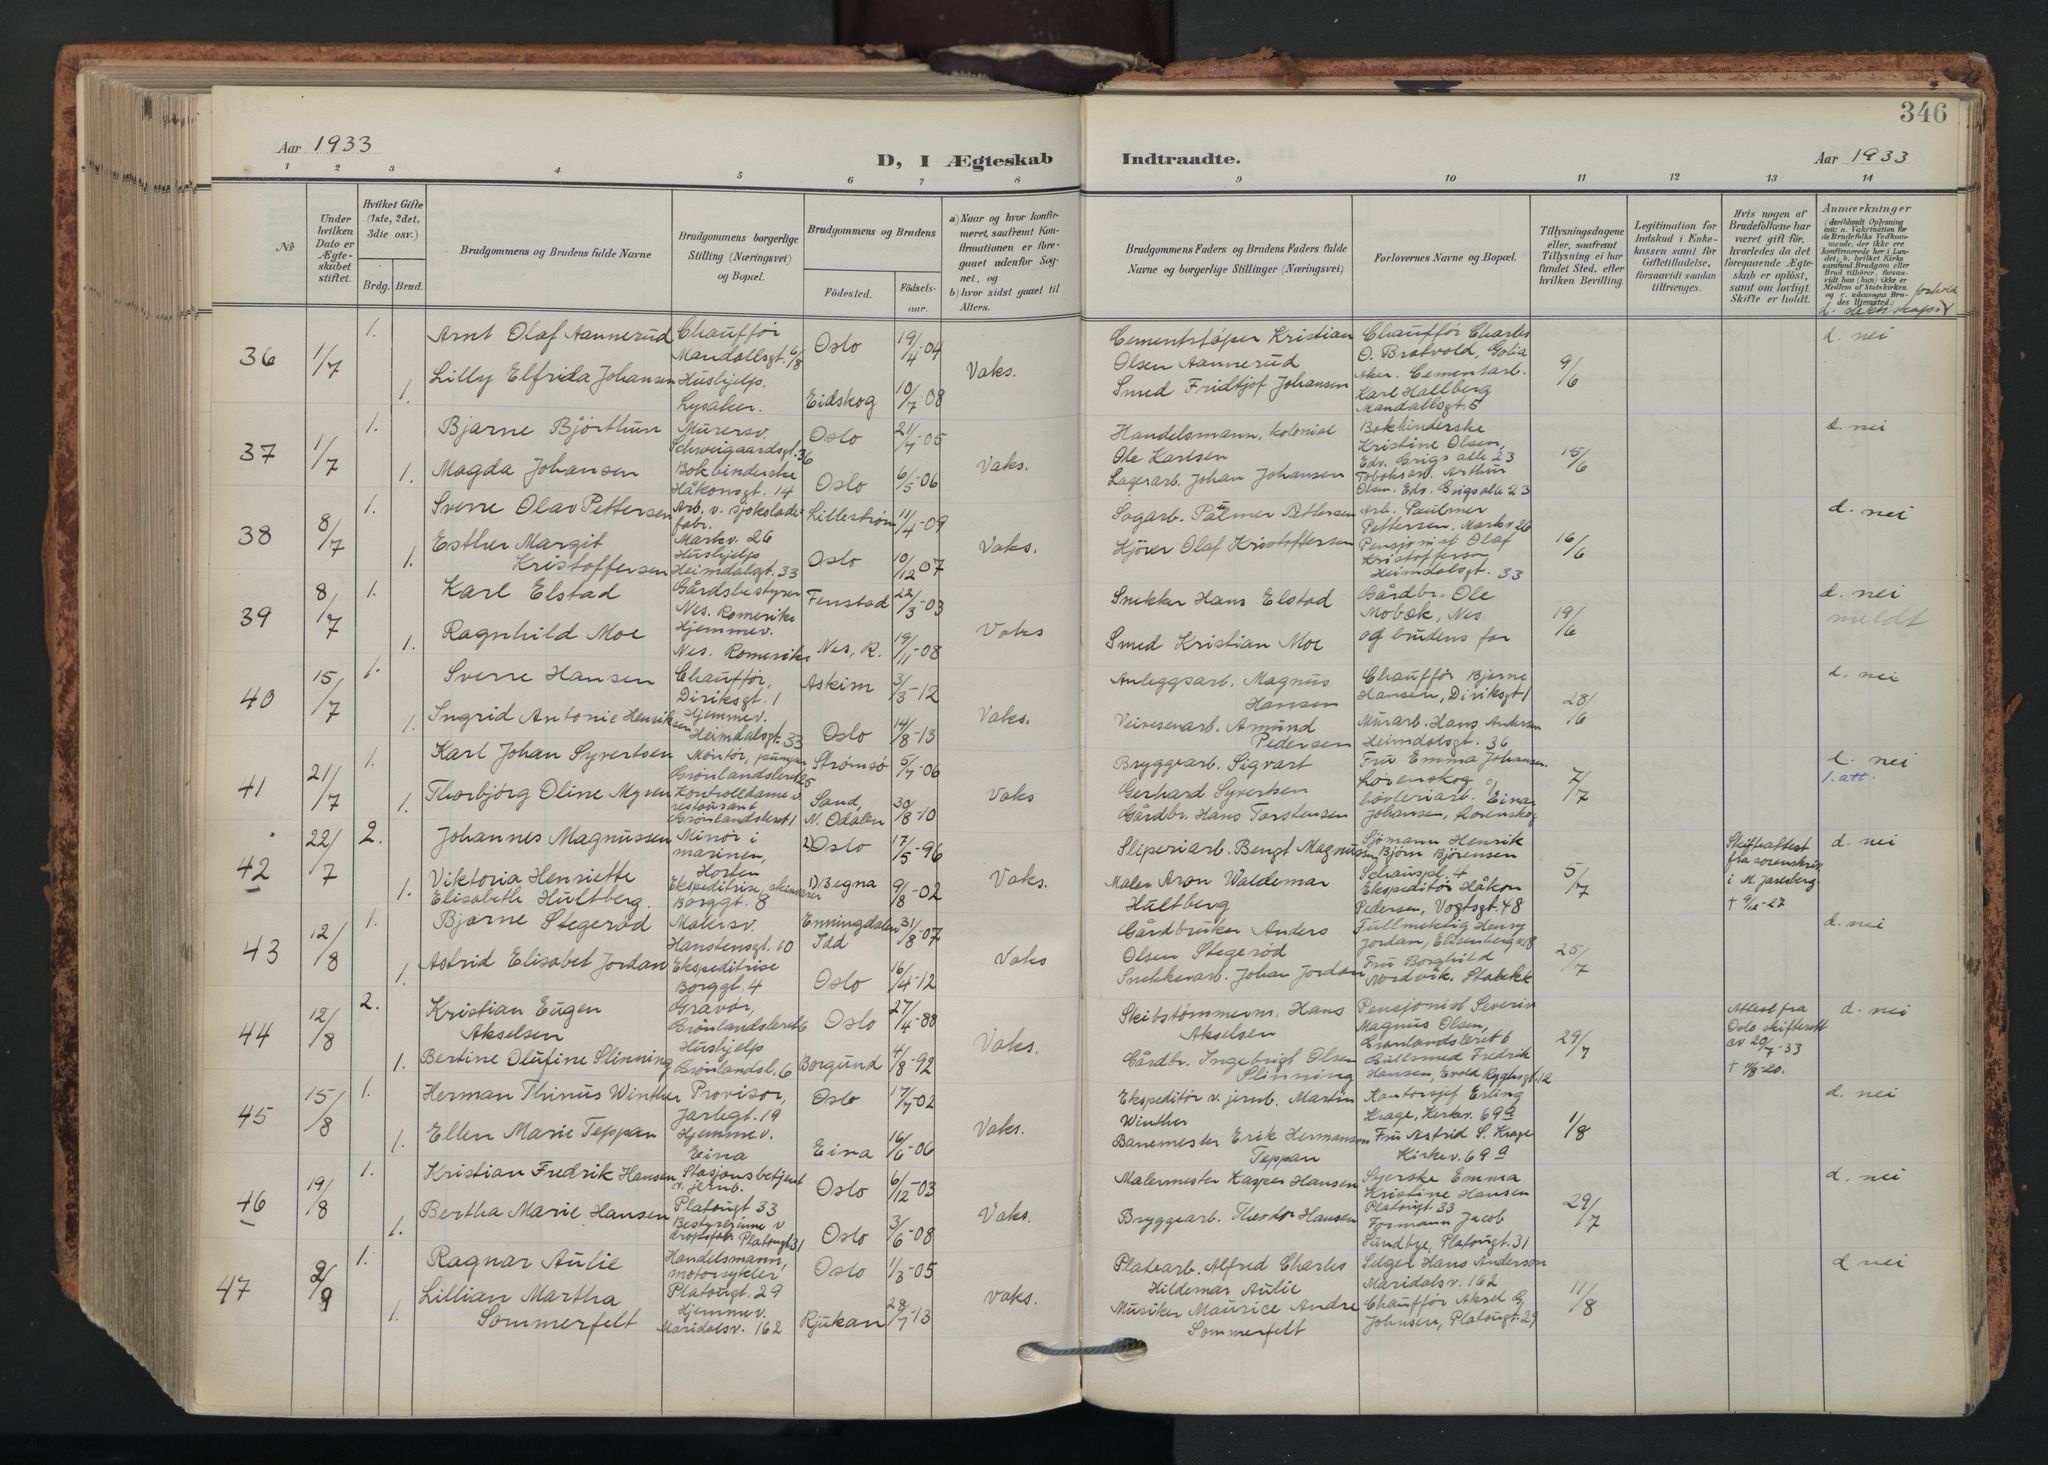 346
Aar 1933
D, I Ægteskab
Indtraadte.
Aar 1933
1 2 3 4 5 6 7 8 9 10 11 12 13 14
№
Under hvilken Dato er Ægteskabet stiftet.
Hvilket Gifte (1ste, 2det, 3die osv.)
Brdg. Brud.
Brudgommens og Brudens fulde Navne
Brudgommens borgerlige Stilling (Næringsvei) og Bopæl.
Brudgommens og Brudens
Fødested. Fødselsaar.
a) Naar og hvor konfirmeret, saafremt Konfirmationen er foregaaet udenfor Sognet, og
b) hvor sidst gaaet til Alters.
Brudgommens Faders og Brudens Faders fulde Navne og borgerlige Stillinger (Næringsvei)
Forlovernes Navne og Bopæl.
Tillysningsdagene eller, saafremt Tillysning ei har fundet Sted, efter hvilken Bevilling.
Legitimation for Indskud i Enkekassen samt for Giftetilladelse, forsaavidt saadan tiltrænges.
Hvis nogen af Brudefolkene har været gift før, hvorledes da det foregaaende Ægteskab er opløst, samt om lovligt Skifte er holdt.
Anmærkninger
36 1/7 1. Arnt Olaf Aannerud Chauffør Mandallsgt. 6/8 Oslo 19/4-04 Cementstøper Kristian Olsen Aannerud Chauffør Charles O. Bratvold, Golia Aker. Cementarb. 9/6 d. nei
1. Lilly Elfrida Johansen Hushjelp, Lysaker. Eidskog 10/7-08 Vaks. Smed Fridtjof Johansen Karl Hallberg Mandallsgt. 5
37 1/7 1. Bjarne Bjørthun Murersv. Schweigaardsgt. 36 Oslo 21/7-05 Handelsmann, kolonial Ole Karlsen Bokbinderske Kristine Olsen, Edv. Grigs alle 23 15/6 d. nei
1. Magda Johansen Bokbinderske Håkonsgt. 14 Oslo 6/5-06 Vaks. Lagerarb. Johan Johansen Tobaksarb. Arthur Olsen. Edv. Grigs alle 23
38 8/7 1. Sverre Olav Pettersen Arb. v. sjokoladefabr. Markv. 26 Lillestrøm 11/4-09 Sagarb. Palmer Pettersen Arb. Paulmer Pettersen. Markv 26 16/6 d. nei
1. Esther Margit Kristoffersen Hushjelp Heimdalsgt. 33 Oslo 10/12 07 Vaks. Kjører Olaf Kristoffersen Pensjonist Olaf Kristoffersen Heimdalsgt. 33
39 8/7 1. Karl Elstad Gårdsbestyrer Nes. Romerike Fenstad 22/3-03 Snekker Hans Elstad Gårdbr. Ole Mobæk, Nes 19/6 d. nei meldt
1. Ragnhild Moe Hjemmev. Nes. Romerike Nes, R. 19/11-08 Vaks Smed Kristian Moe og brudens far
40 15/7 1. Sverre Hansen Chauffør, Diriksgt. 1 Askim 3/3-12 Anleggsarb. Magnus Hansen Chauffør Bjarne Hansen, Diriksgt 1 28/6 d. nei
1. Ingrid Antonie Henriksen Hjemmev. Heimdalsgt. 33 Oslo 14/8-13 Vaks. Veivesenarb. Amund Pedersen Murarb. Hans Andersen Heimdalsgt. 36
41 21/7 1. Karl Johan Syvertsen Montør, Grønlandsleret 25 Strømsø 5/7-06 Bryggearb. Sigvart Gerhard Syvertsen Fru Emma Johansen. Lørenskog og 7/7 d. nei 1. att.
1. Thorbjørg Oline Myren Kontrolldame v. restaurant Grønlandsleret 1 Sand, N. Odalen 30/8-10 Vaks Gårdbr. Hans Torstensen høvleriarb. Einar Johansen, Lørenskog
42 22/7 2. Johannes Magnussen Minør i marinen, Horten 2) Oslo 17/5-96 Sliperiarb. Bengt Magnussen Sjømann Henrik Bjørn Bjørensen Schauspl. 4 5/7 Skifteattest fra sorenskriv. i M. Jarlsberg. † 9/12-27 d. nei
1. Viktoria Henriette Elisabeth Hultberg. Ekspeditrise, Borggt. 8 1) Begna 9/8-02 Vaks. Maler Aron Waldemar Hultberg Ekspeditør Håkon Pedersen, Vogtsgt. 48
43 12/8 1. Bjarne Stegerød Malersv. Hanstensgt. 10 Enningdalen Idd 31/8-07 Gårdbruker Anders Olsen Stegerød Fullmektig Henry Jordan, Elisenbergv. 18 25/7 d. nei
1. Astrid Elisabet Jordan Ekspeditrise Borggt. 4 Oslo 16/4-12 Vaks Snekkerarb. Johan Jordan Fru Borghild Nordvik. Stabekk
44 12/8 2. Kristian Eugen Akselsen Gravør, Grønlandsleret 6 Oslo 27/4-88 Skibstømmerm. Hans Akselsen Pensjonist Severin Magnus Olsen, Grønlandsleret 6 29/7 Attest fra Oslo skifterett av 20/7-33 † 4/8-20. d. nei
1. Bertine Olufine Slinning Hushjelp Grønlandsl. 6 Borgund 4/8-92 Vaks. Gårdbr. Ingebrigt Olsen Slinning Gullsmed Fredrik Hansen, Evald Ryghsgt. 12
45 15/8 1. Herman Thinus Winther Provisor, Jarlegt. 19 Oslo 17/7-02 Ekspeditør v. jernb. Martin Winther Kontorsjef Erling Krage, Kirkev. 69 a 1/8 d. nei
1. Ellen Marie Teppan Hjemmev. Eina Eina 16/6-06 Vaks. Banemester Erik Hermansen Teppan Fru Astrid S. Krage Kirkev. 69 a
46 19/8 1. Kristian Fredrik Hansen Stasjonsbetjent v. jernb. Platougt 33 Oslo 6/12-03 Malermester Kasper Hansen Syerske Emma Kristine Hansen Platougt. 33 29/7 d. nei
1. Bertha Marie Hansen Bestyrerinne v dropsfabr. Platougt 31 Oslo 3/6-08 Vaks. Bryggearb. Theodor Hansen Formann Jacob Sundbye, Platougt. 31
47 2/9 1. Ragnar Aulie Handelsmann, motorsykler, Platougt. 29 Oslo 1/3-05 Platearb. Alfred Charles Hildemar Aulie Selger Hans Anderson Maridalsv. 162 11/8 d nei
1. Lillian Martha Sommerfelt Hjemmev. Maridalsv. 162 Rjukan 28/7-13 Vaks. Musiker Maurice Andre Sommerfelt Chauffør Aksel G. Johnsen, Platougt. 29